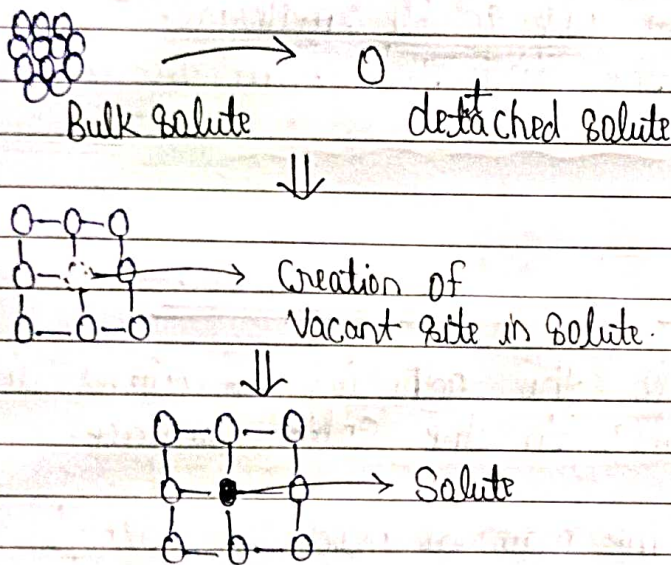 Bulk solute
detached solute
Creation of
Vacant site in solute.
Solute